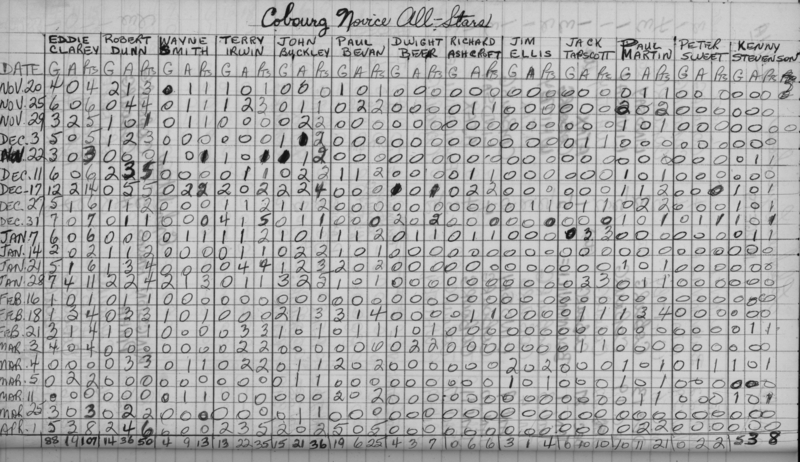 Cobourg Novice All-Stars
EDDIE CLAREY ROBERT DUNN WAYNE SMITH TERRY IRWIN JOHN BUCKLEY PAUL BEVAN DWIGHT BEER RICHARD ASHCROFT JIM ELLIS JACK TAPSCOTT PAUL MARTIN PETER SWEET KENNY STEVENSON
DATE G A Pts G A Pts G A Pts G A Pts G A Pts G A Pts G A Pts G A Pts G A Pts G A Pts G A Pts G A Pts G A Pts
NOV. 20 4 0 4 2 1 3 0 1 1 1 0 1 0 0 0 1 0 1 0 0 0 0 0 0 0 0 0 0 0 0 0 1 1 0 0 0 0 0 0
NOV. 25 6 0 6 0 4 4 0 1 1 1 2 3 0 1 1 0 2 2 0 0 0 0 1 1 0 0 0 0 0 0 2 0 2 0 0 0
NOV. 29 3 2 5 1 0 1 0 0 0 0 0 0 0 2 2 0 0 0 0 0 0 0 0 0 0 0 0 0 0 0 1 0 1 0 0 0
DEC. 3 5 0 5 1 2 3 0 0 0 0 0 0 1 2 0 0 0 0 0 0 0 0 0 0 0 0 0 0 0 0 0 0 0 0 0 0 0 0
NOV. 22 3 0 3 0 0 0 1 0 1 1 0 1 1 2 0 0 0 0 0 0 0 0 0 0 0 0 0 0 0 0 0 0 0 0 0 0 1 1
DEC. 11 6 0 6 2 3 5 0 0 0 0 1 1 0 2 2 1 1 2 0 0 0 0 1 1 0 0 0 0 0 0 1 0 1 0 0 0 0 0 0
DEC. 17 12 2 14 0 5 5 0 2 2 2 0 2 2 2 4 0 0 0 1 0 1 0 2 2 0 0 0 0 0 0 1 1 2 0 0 0 0 1 1
DEC. 27 5 1 6 1 1 2 0 0 0 1 1 2 1 1 2 0 0 0 0 0 0 0 0 0 0 1 1 0 1 1 0 2 2 0 0 0 0 0 0
DEC. 31 7 0 7 0 1 1 0 0 0 4 1 5 0 1 1 0 0 0 2 0 2 0 0 0 0 0 0 1 0 1 1 0 1 0 1 1 1 0 1
JAN 7 6 0 6 0 0 0 0 1 1 1 1 2 1 0 1 1 1 2 0 1 1 0 1 1 0 0 0 0 3 3 0 0 0 0 0 0 0 1 1
JAN. 14 2 0 2 1 1 2 0 0 0 0 1 1 0 2 2 1 0 1 0 0 0 0 0 0 0 0 0 0 0 0 0 0 0 0 0 0 0 0 0
JAN. 21 5 1 6 1 3 4 0 0 0 0 4 4 1 2 3 2 0 2 0 0 0 0 0 0 0 0 0 0 0 0 1 0 1 0 0 0 0 1 1
JAN. 28 7 4 11 2 2 4 2 1 3 0 1 1 3 2 5 1 0 1 0 0 0 0 0 0 0 0 0 0 0 0 0 0 0 0 0 0
FEB. 16 1 0 1 0 1 1 0 0 0 0 0 0 0 0 0 0 0 0 0 0 0 0 0 0 0 0 0 0 0 0 0 0 0 0 0 0 0 0 0
FEB. 18 2 4 0 3 3 1 0 1 0 0 0 2 1 3 3 1 4 0 0 0 0 0 0 0 0 0 0 1 1 1 3 4 0 0 0 0 0 0
FEB. 21 3 1 4 1 0 1 0 0 0 0 3 3 1 0 1 0 1 1 1 0 1 0 0 0 0 0 0 0 0 0 0 0 0 0 0 0 0 1 1
MAR. 3 4 0 4 0 0 0 0 0 0 0 2 2 0 0 0 0 0 0 0 2 2 0 0 0 0 0 0 0 1 1 1 0 1 0 0 0 0 0 0
MAR. 4 0 0 0 0 3 3 0 1 1 0 2 2 0 1 1 2 0 2 0 0 0 0 0 0 2 0 2 0 0 0 1 0 1 0 1 1 1 0 1
MAR. 5 0 2 2 0 0 0 0 0 0 0 0 0 0 1 1 0 0 0 0 0 0 0 0 0 1 0 1 0 0 0 0 1 1 0 0 0
MAR. 11 0 0 0 0 0 0 0 1 1 0 0 0 0 0 0 2 0 2 0 0 0 0 0 0 0 0 0 0 0 0 0 1 1 0 0 0 1 0 1
MAR. 25 3 0 3 0 2 2 0 0 0 0 0 0 0 1 1 0 0 0 0 0 0 0 0 0 0 0 0 0 0 0 0 0 0 0 0 0 0 0 0
APR. 1 5 3 8 2 4 6 0 0 0 2 3 5 2 0 2 5 0 5 0 0 0 0 0 0 0 0 0 0 0 0 0 2 2 0 0 0 0 0 0
88 19 107 14 36 50 4 9 13 13 22 35 15 21 36 19 6 25 4 3 7 0 6 6 3 1 4 10 10 10 11 21 0 2 2 5 3 8